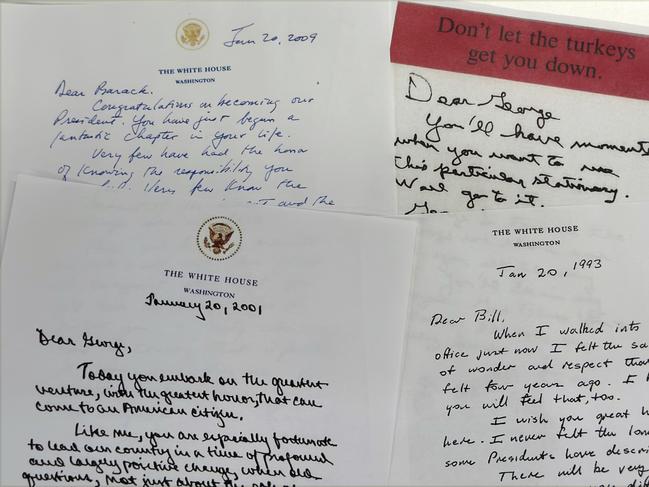 Jan 20, 2009
THE WHITE HOUSE
WASHINGTON
Dear Barack.
Congratulations on becoming our
President. You have just begun a
fantastic chapter in your life.
Very few have had the honor
of knowing the responsibility you
Very few know the
and the
Don't let the turkeys
get you down.
Dear George
You'll have moments
when you want to use
this particular stationary.
Well go to it.
THE WHITE HOUSE
WASHINGTON
January 20, 2001
Dear George,
Today you embark on the greatest
venture, with the greatest honor, that can
come to an American citizen.
Like me, you are especially fortunate
to lead our country in a time of profound
and largely positive change, when old
questions, not just about the role of
THE WHITE HOUSE
WASHINGTON
Jan 20, 1993
Dear Bill,
When I walked into
office just now I felt the sa
of wonder and respect tha
felt four years ago. I
you will feel that, too.
I wish you great h
here. I never felt the lon
some Presidents have descri
There will be very